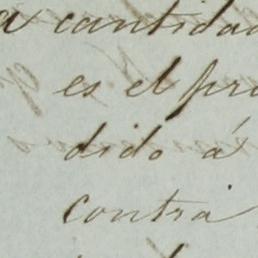 a cantidad
es el pro
dido á
contra